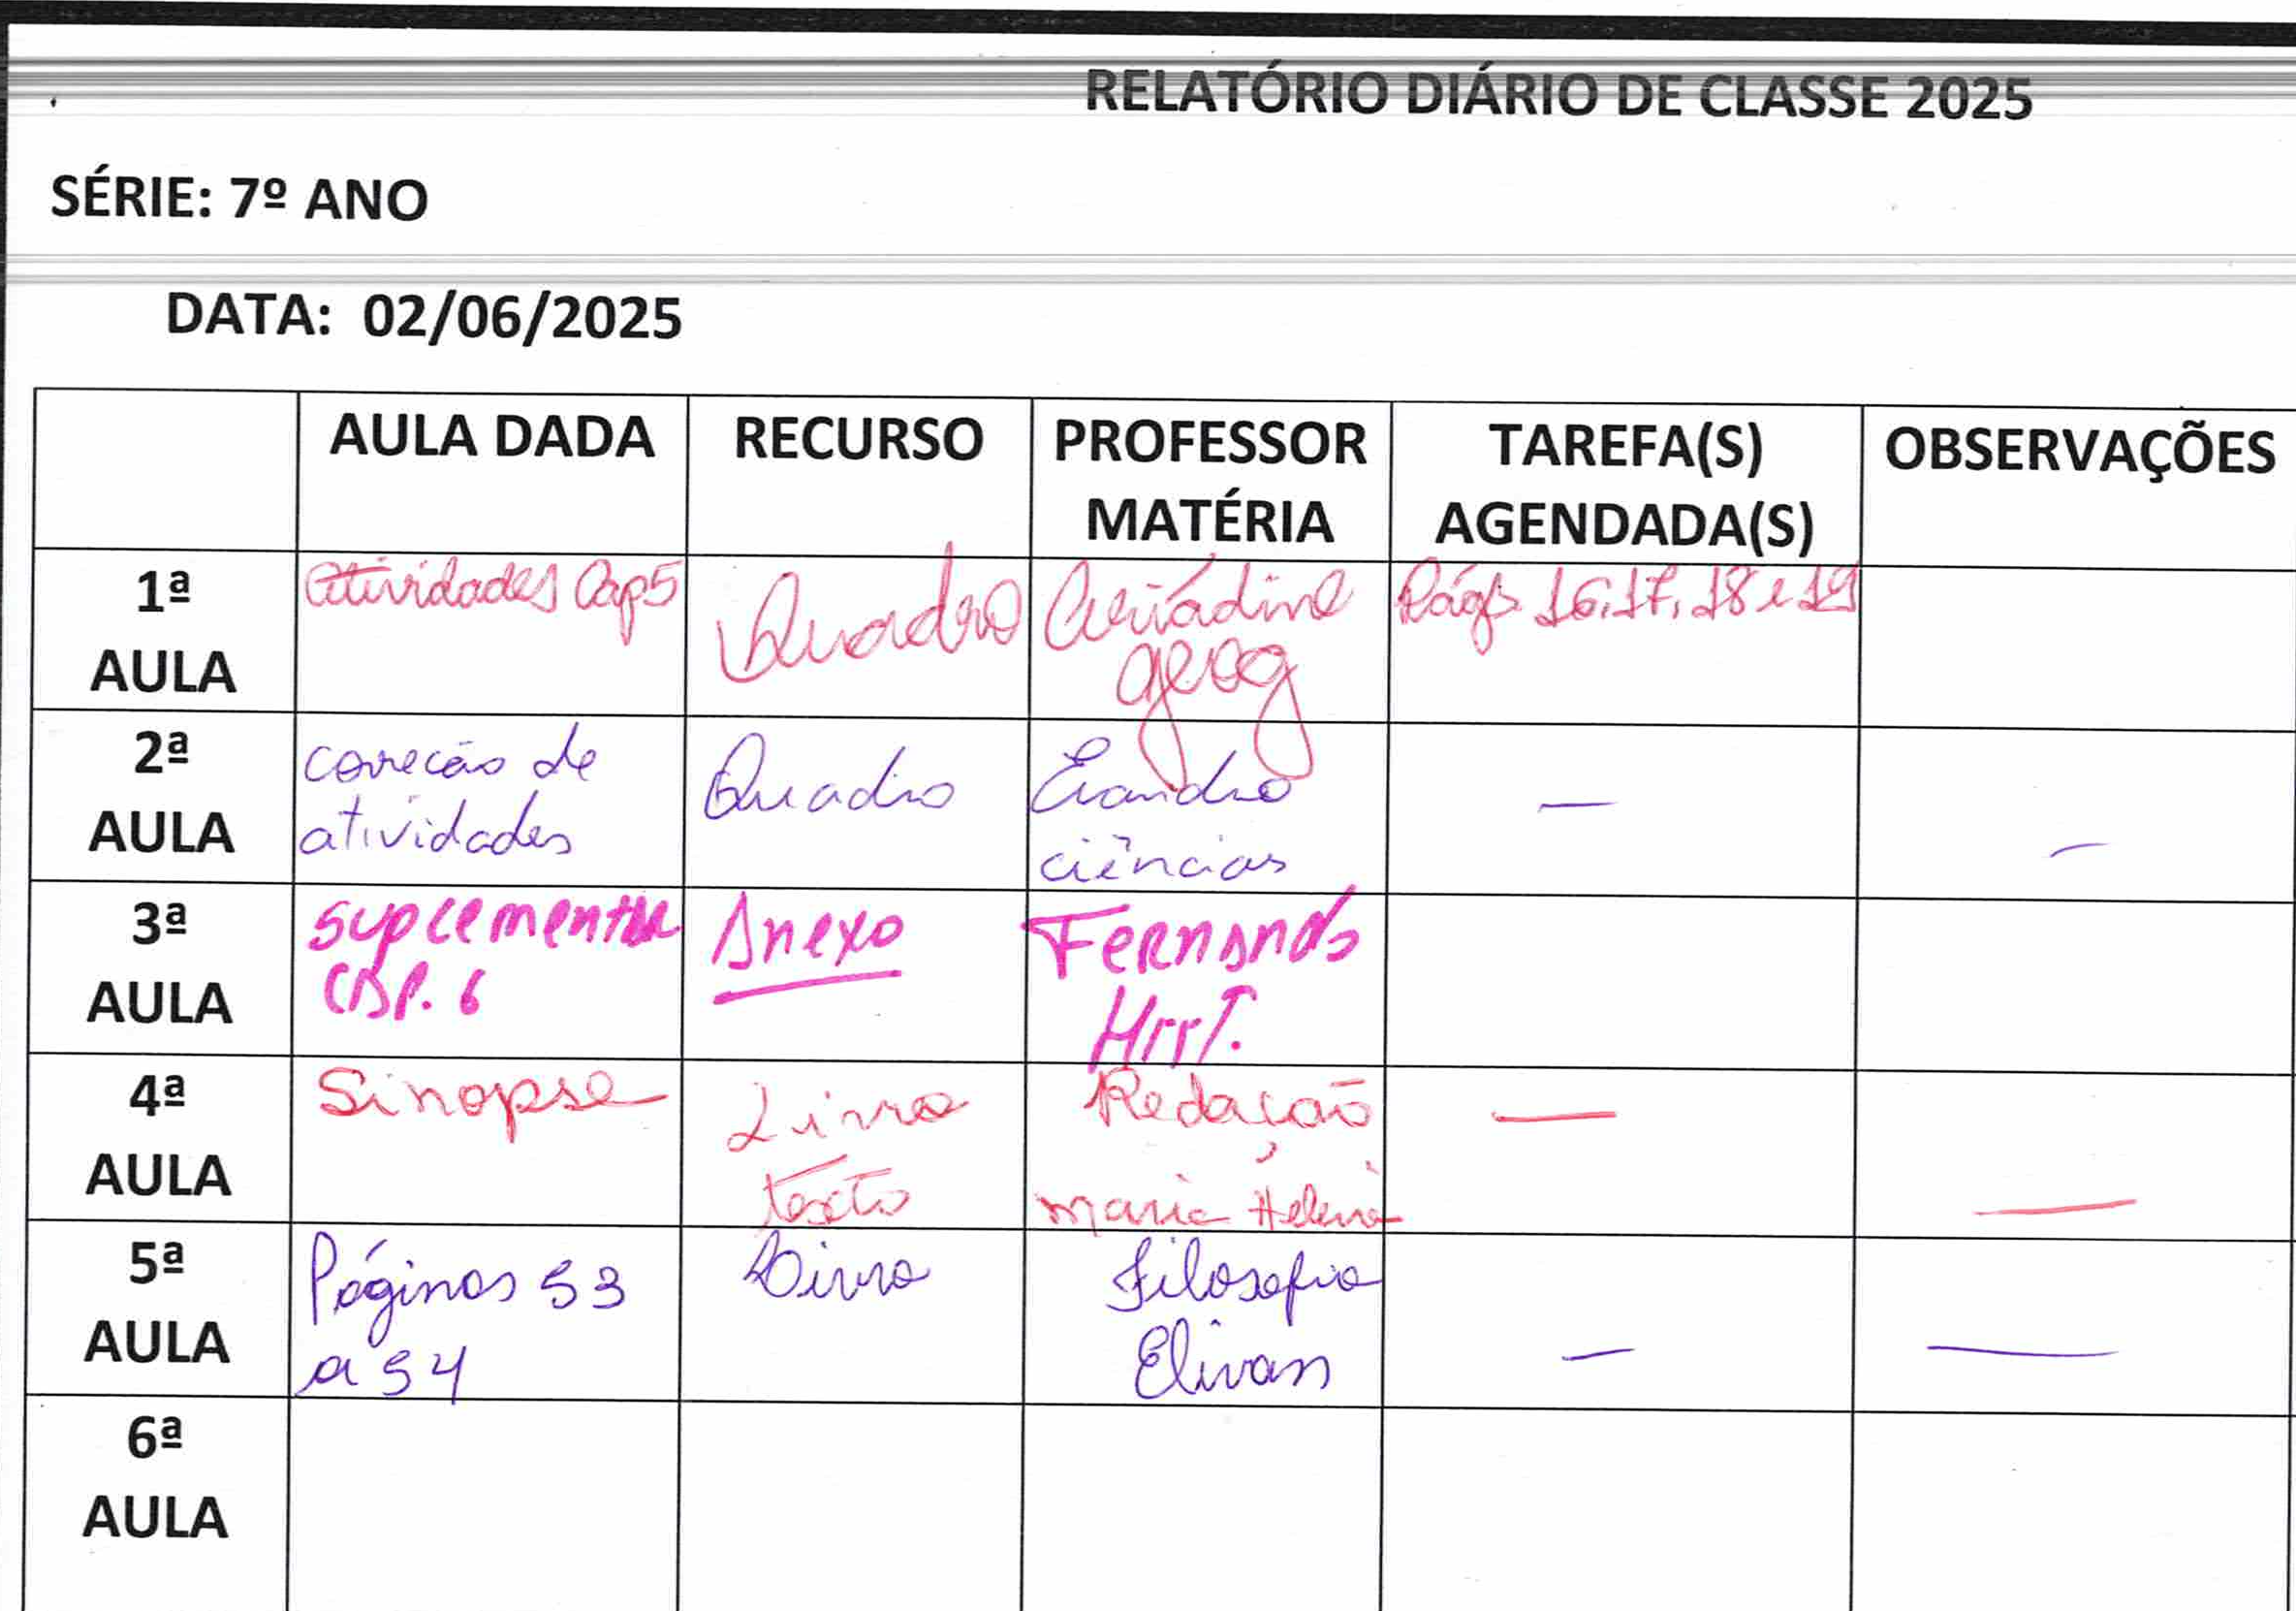 RELATÓRIO DIÁRIO DE CLASSE 2025
SÉRIE: 7º ANO
DATA: 02/06/2025
AULA DADA RECURSO PROFESSOR MATÉRIA TAREFA(S) AGENDADA(S) OBSERVAÇÕES
1ª AULA
Atividades Cap 5
Quadro
geog
Págs 16, 17, 18 e 19
2ª AULA
correcão de
atividades
Quadro
Evandro
ciências
—
—
3ª AULA
suplementar
CAP. 6
Anexo
Fernando
4ª AULA
Sinopse
Livro
texto
Redação
Maria Helena
—
—
5ª AULA
Páginas 53
a 54
Livro
Filosofia
Elivan
—
—
6ª AULA